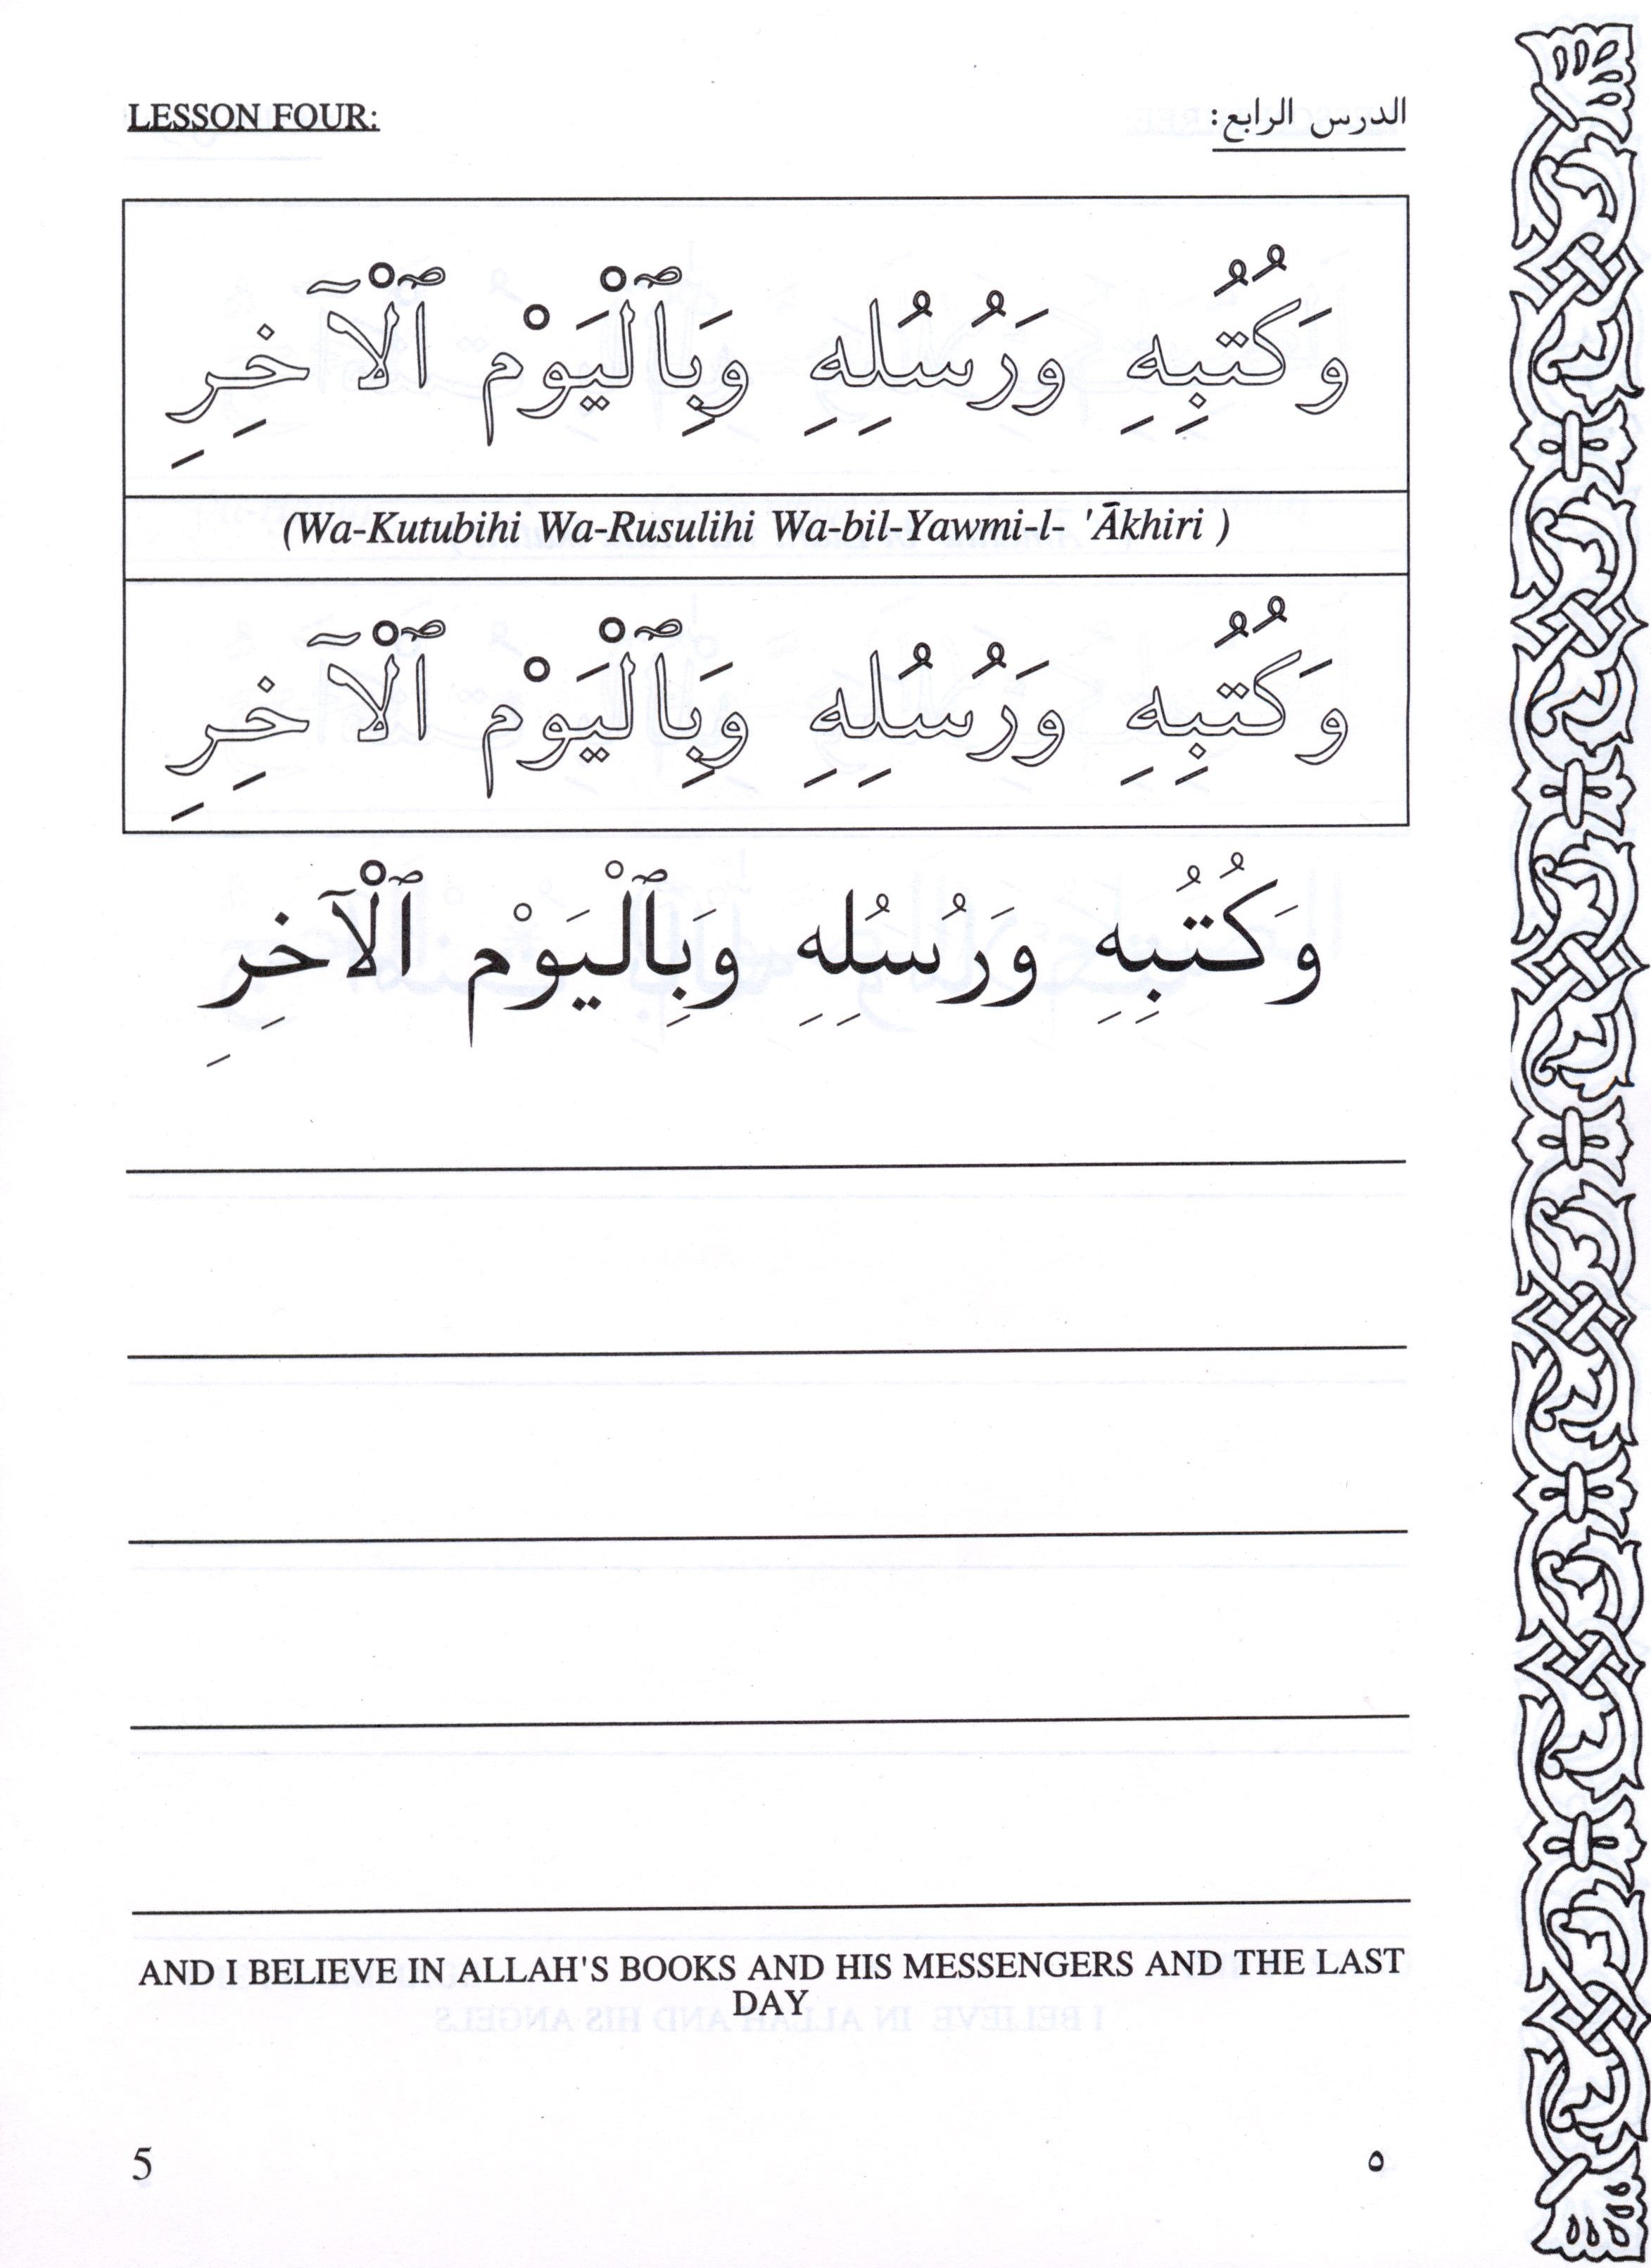 LESSON FOUR:
الدرس الرابع:
وَكُتُبِهِ وَرُسُلِهِ وَبِٱلْيَوْم ٱلْآخِرِ
(Wa-Kutubihi Wa-Rusulihi Wa-bil-Yawmi-l- 'Ākhiri )
وَكُتُبِهِ وَرُسُلِهِ وَبِٱلْيَوْم ٱلْآخِرِ
وَكُتُبِهِ وَرُسُلِهِ وَبِٱلْيَوْم ٱلْآخِرِ
AND I BELIEVE IN ALLAH'S BOOKS AND HIS MESSENGERS AND THE LAST
DAY
5
٥